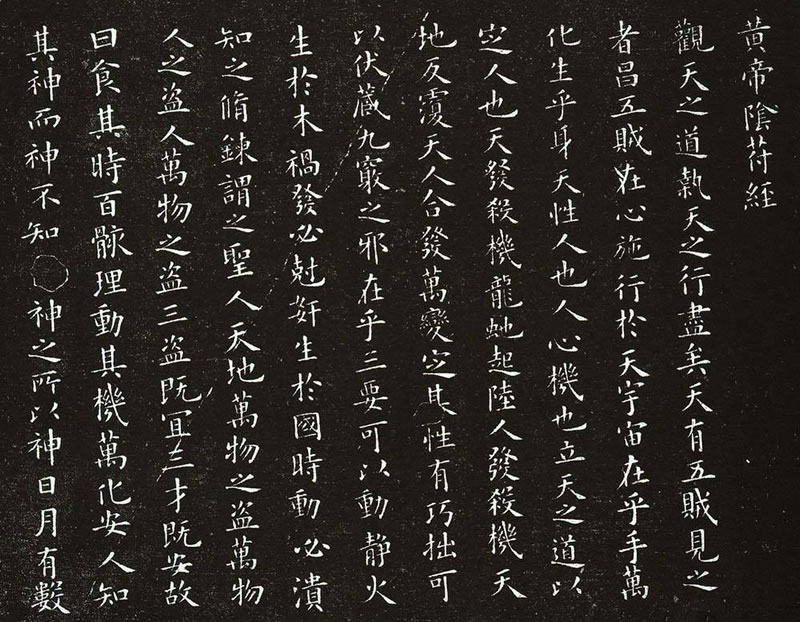 黄帝陰苻經
觀天之道執天之行盡矣天有五賊見之
者昌五賊在心施行於天宇宙在乎手萬
化生乎身天性人也人心機也立天之道以
定人也天發殺機龍虵起陸人發殺機天
地反覆天人合發萬變定其性有巧拙可
以伏藏九竅之邪在乎三要可以動静火
生於木禍發必尅奸生於國時動必潰
知之脩鍊謂之聖人天地萬物之盗萬物
人之盗人萬物之盗三盗既冝三才既安故
曰食其時百骸理動其機萬化安人知
其神而神不知〇神之所以神日月有數